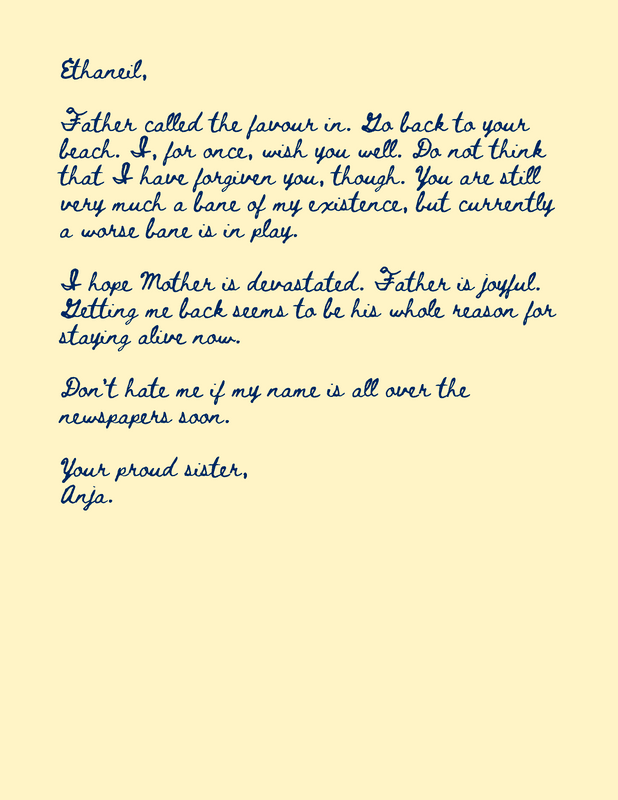 Ethaneil,
Father called the favour in. Go back to your
beach. I, for once, wish you well. Do not think
that I have forgiven you, though. You are still
very much a bane of my existence, but currently
a worse bane is in play.
I hope Mother is devastated. Father is joyful.
Getting me back seems to be his whole reason for
staying alive now.
Don't hate me if my name is all over the
newspapers soon.
Your proud sister,
Anja.